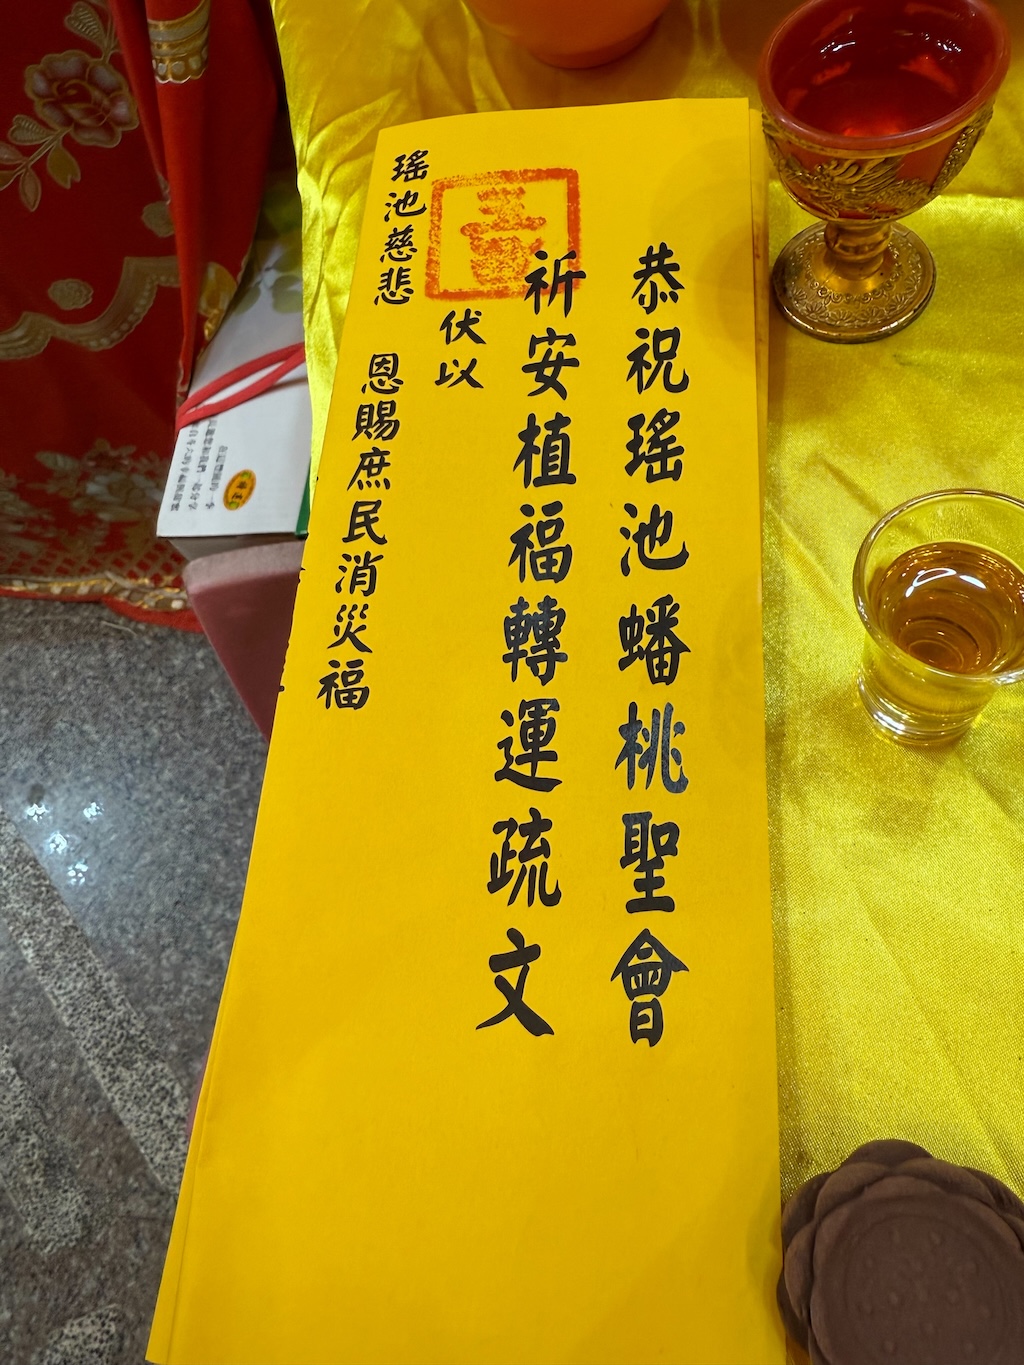 恭祝瑤池蟠桃聖會
祈安植福轉運疏文
伏以
瑤池慈悲 恩賜庶民消災福